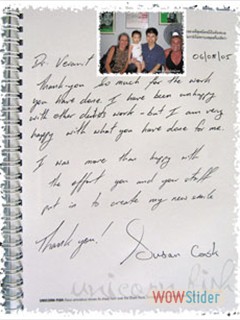 06/08/05
Dr. Veravit
Thank you so much for the work
you have done. I have been unhappy
with other dentists work - but I am very
happy with what you have done for me.
I was more than happy with
the effort you and your staff
put in to create my new smile
Thank you!
Susan Cook
unicorn fish
UNICORN FISH
WOWSlider